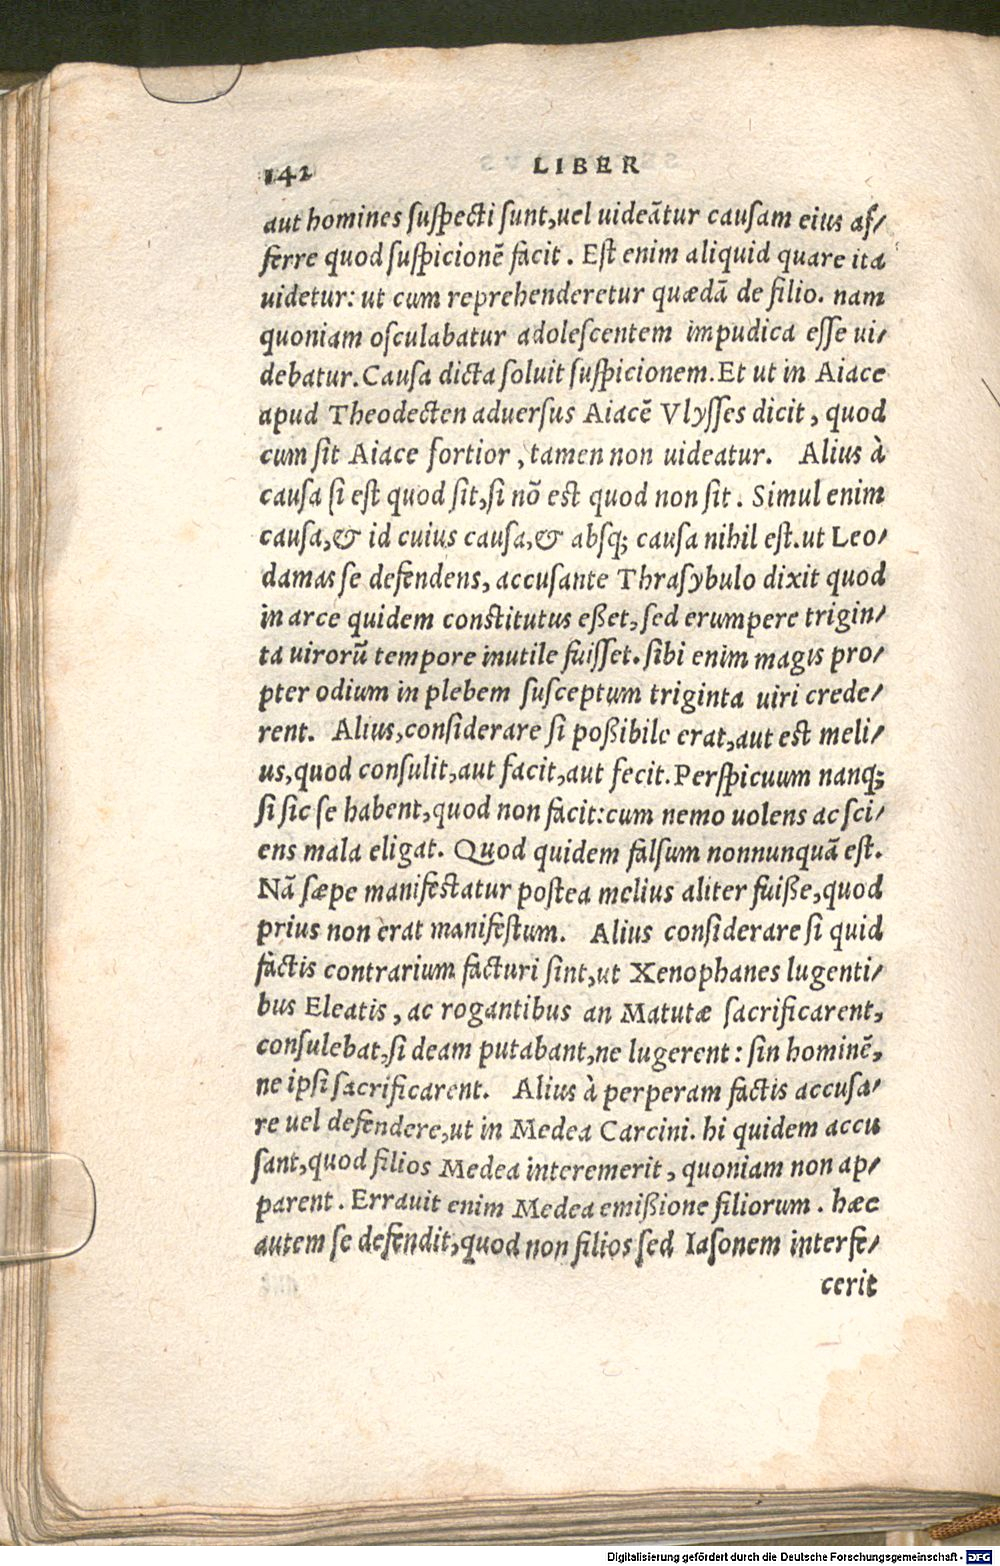 142 LIBER
aut homines ſuſpecti ſunt,uel uideãtur cauſam eius aſ/
ferre quod ſuſpicionẽ facit. Eſt enim aliquid quare ita
uidetur: ut cum reprehenderetur quædã de filio. nam
quoniam oſculabatur adoleſcentem impudica eſſe ui/
debatur. Cauſa dicta ſoluit ſuſpicionem. Et ut in Aiace
apud Theodecten aduerſus Aiacẽ Vlyſſes dicit, quod
cum ſit Aiace fortior, tamen non uideatur. Alius à
cauſa ſi eſt quod ſit,ſi nõ est quod non ſit. Simul enim
cauſa,& id cuius cauſa,& abſq; cauſa nihil eſt.ut Leo/
damas se defendens, accusante Thraſybulo dixit quod
in arce quidem conſtitutus eßet, sed erumpere trigin/
ta uirorũ tempore inutile fuiſſet. ſibi enim magis pro/
pter odium in plebem ſuſceptum triginta uiri crede/
rent. Alius,conſiderare ſi poßibile erat,aut est meli/
us,quod conſulit,aut facit,aut fecit. Perſpicuum nanq;
ſi ſic ſe habent,quod non facit:cum nemo uolens ac ſci/
ens mala eligat. Quod quidem falſum nonnunquã eſt.
Nã ſæpe manifeſtatur poſtea melius aliter fuiße,quod
prius non erat manifeſtum. Alius conſiderare ſi quid
factis contrarium facturi ſint,ut Xenophanes lugenti/
bus Eleatis, ac rogantibus an Matutæ ſacrificarent,
conſulebat,ſi deam putabant,ne lugerent: ſin hominẽ,
ne ipſi ſacrificarent. Alius à perperam factis accuſa/
re uel defendere,ut in Medea Carcini. hi quidem accu
ſant,quod filios Medea interemerit, quoniam non ap/
parent. Errauit enim Medea emißione filiorum. hæc
autem se defendit,quod non filios sed Iaſonem interfe/
cerit
Digitalisierung gefördert durch die Deutsche Forschungsgemeinschaft - DFG